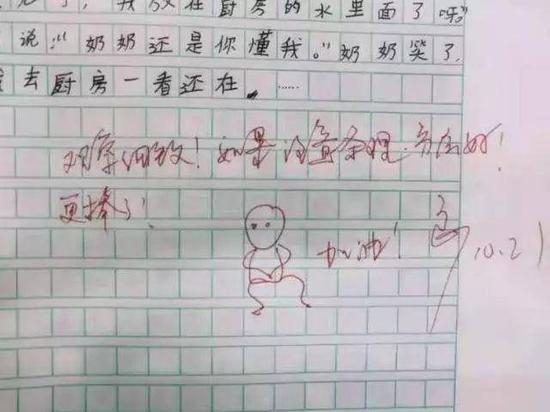 了，"我放在厨房的水里面了呀。"
说："奶奶还是你懂我。"奶奶笑了.
去厨房一看还在。……
观察细致！如果注意条理
更棒了！
加油！
10.21